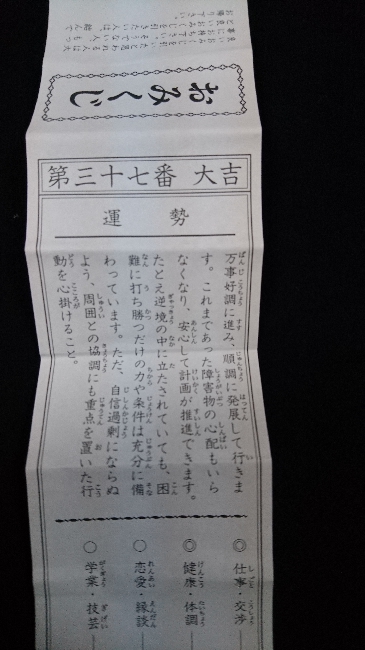 おみくじ
第三十七番 大吉
運勢
万事好調に進み、順調に発展して行きま
す。これまであった障害物の心配もいら
なくなり、安心して計画が推進できます。
たとえ逆境の中に立たされていても、困
難に打ち勝つだけの力や条件は充分に備
わっています。ただ、自信過剰にならぬ
よう、周囲との協調にも重点を置いた行
動を心掛けること。
◎仕事・交渉
◎健康・体調
○恋愛・縁談
○学業・技芸